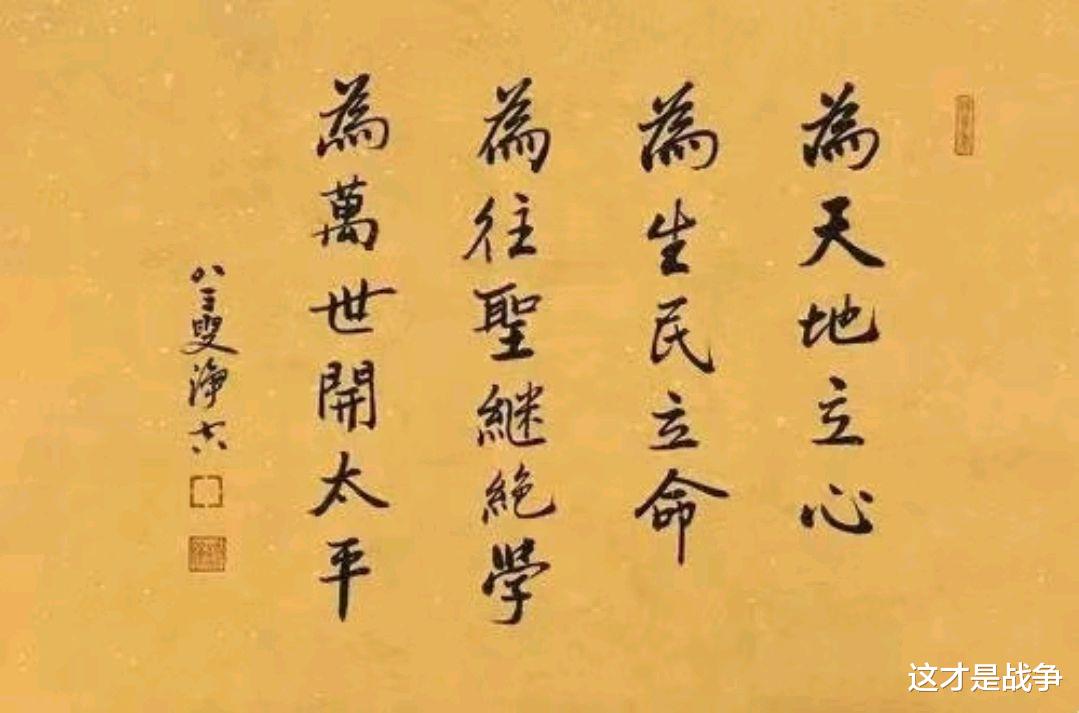 為天地立心
為生民立命
為往聖継絶學
為萬世開太平
八三叟淨空
这才是战争